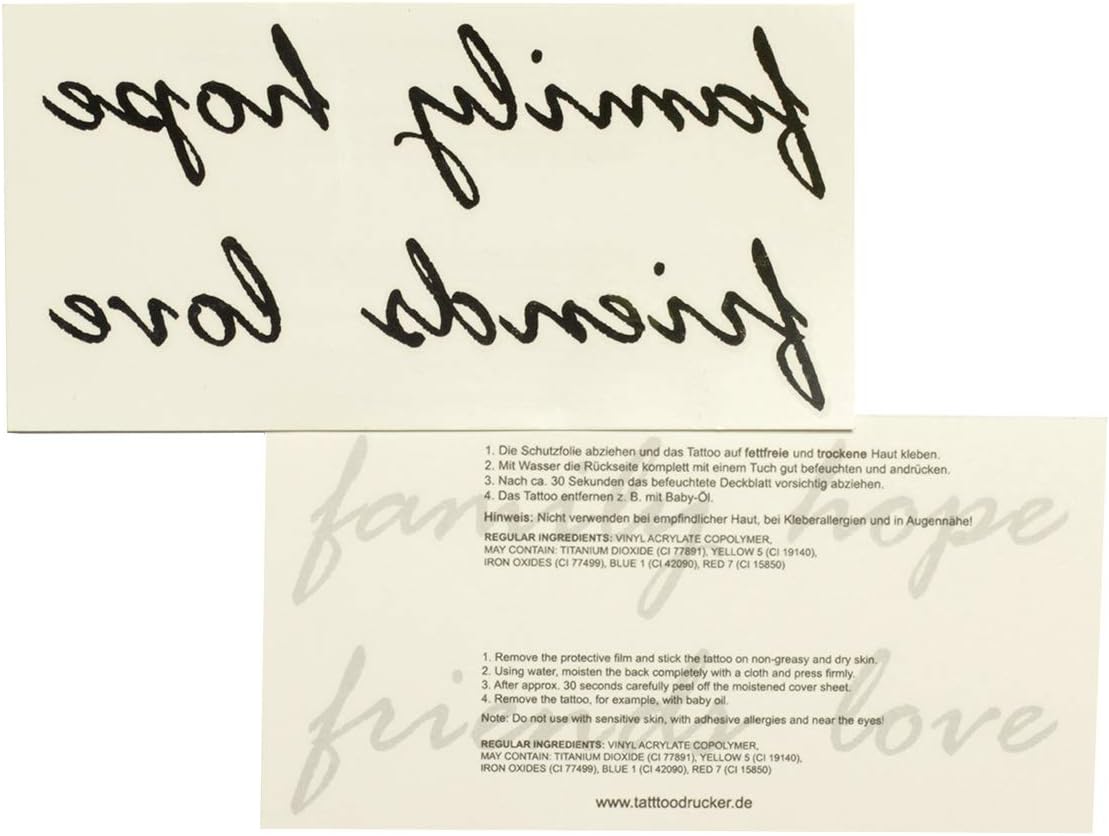 family hope
friends love
family hope
1. Die Schutzfolie abziehen und das Tattoo auf fettfreie und trockene Haut kleben.
2. Mit Wasser die Rückseite komplett mit einem Tuch gut befeuchten und andrücken.
3. Nach ca. 30 Sekunden das befeuchtete Deckblatt vorsichtig abziehen.
4. Das Tattoo entfernen z. B. mit Baby-Öl.
Hinweis: Nicht verwenden bei empfindlicher Haut, bei Kleberallergien und in Augennähe!
REGULAR INGREDIENTS: VINYL ACRYLATE COPOLYMER,
MAY CONTAIN: TITANIUM DIOXIDE (CI 77891), YELLOW 5 (CI 19140),
IRON OXIDES (CI 77499), BLUE 1 (CI 42090), RED 7 (CI 15850)
friends love
1. Remove the protective film and stick the tattoo on non-greasy and dry skin.
2. Using water, moisten the back completely with a cloth and press firmly.
3. After approx. 30 seconds carefully peel off the moistened cover sheet.
4. Remove the tattoo, for example, with baby oil.
Note: Do not use with sensitive skin, with adhesive allergies and near the eyes!
REGULAR INGREDIENTS: VINYL ACRYLATE COPOLYMER,
MAY CONTAIN: TITANIUM DIOXIDE (CI 77891), YELLOW 5 (CI 19140),
IRON OXIDES (CI 77499), BLUE 1 (CI 42090), RED 7 (CI 15850)
www.tatttoodrucker.de